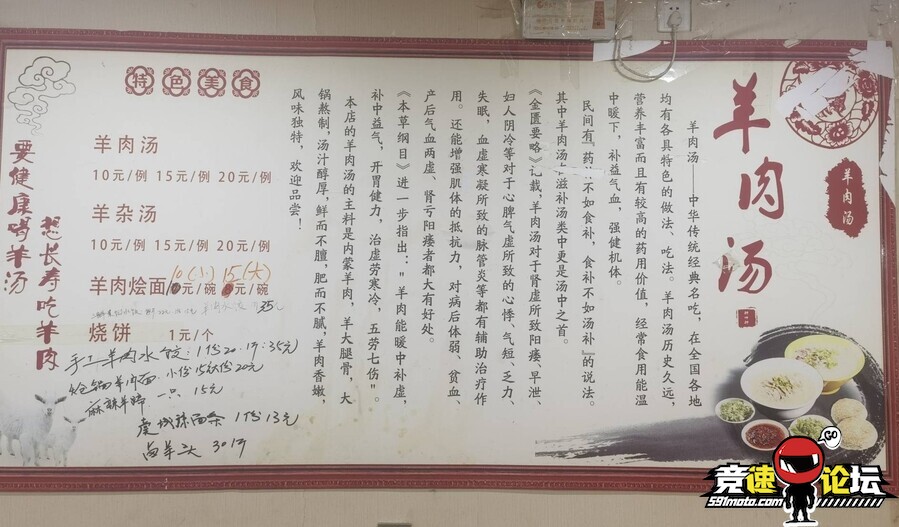 羊肉汤
羊肉汤
羊肉汤——中华传统经典名吃，在全国各地
均有各具特色的做法、吃法。羊肉汤历史久远，
营养丰富而且有较高的药用价值，经常食用能温
中暖下，补益气血，强健机体。
民间有『药 不如食补，食补不如汤补』的说法。
其中羊肉汤 滋补汤类中更是汤中之首。
《金匮要略》记载，羊肉汤对于肾虚所致阳痿、早泄、
妇人阴冷等对于心脾气虚所致的心悸、气短、乏力、
失眠，血虚寒凝所致的脉管炎等都有辅助治疗作
用。还能增强肌体的抵抗力，对病后体弱、贫血、
产后气血两虚、肾亏阳痿者都大有好处。
《本草纲目》进一步指出："羊肉能暖中补虚，
补中益气，开胃健力，治虚劳寒冷，五劳七伤"。
本店的羊肉汤的主料是内蒙羊肉，羊大腿骨，大
锅熬制，汤汁醇厚，鲜而不膻，肥而不腻，羊肉香嫩，
风味独特，欢迎品尝！
特色美食
羊肉汤
10元/例 15元/例 20元/例
羊杂汤
10元/例 15元/例 20元/例
羊肉烩面 10(小) 15(大)
元/碗 元/碗
35元
烧饼 1元/个
手工羊肉水饺：1份20. 1斤：35元
炝锅羊肉面. 小份15 大份20元
麻辣羊蹄 一只 15元
虞城 面条 1份13元
羊头 30 1个
想长寿吃羊肉
要健康喝羊汤
GO
竞速论坛
591moto.com